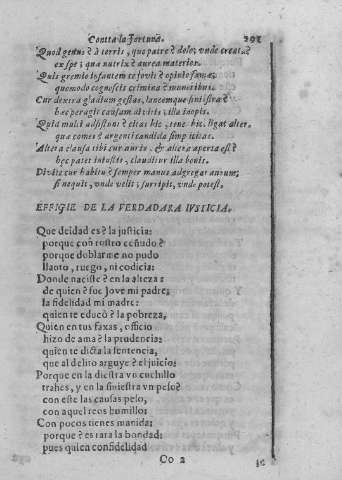 Contra la Fortuna. 202
Quod genus? è terris, quo patre? dolo; unde creat?
ex spe; qua nutrix? aurea materies.
Quis gremio infantem te fouit? opinio famæ;
quemodo cognoscis crimina? muneribus.
Cur dextra gladium gestas, lancemque sinistra?
hac peragit causam diuitis, illa inopis.
Quia multi adsistunt? citat hic, tenet hic, ligat alter.
qua comes? argenti candida simplicitas.
Altera clausa tibi cur auris, & altera aperta est?
hæc patet iniustis, clauditur illa bonis.
Diuite cur habitu? semper manus adgregat aurum;
si nequit, vnde velit; surripit, vnde potest.
EFFIGIE DE LA VERDADARA IVSTICIA.
Que deidad es? la justicia:
porque con rostro ceñudo?
porque doblarme no pudo
llanto, ruego, ni codicia:
Donde naciste? en la alteza:
de quien? fue Ioue mi padre;
la fidelidad mi madre:
quien te educò? la pobreza,
Quien en tus faxas, officio
hizo de ama? la prudencia:
quien te dicta la sentencia,
que al delito arguye? el juicio:
Porque en la diestra vn cuchillo
trahes, y en la siniestra vn peso?
con este las causas peso,
con aquel reos humillo:
Con pocos tienes manida:
porque? es rara la bondad:
pues quien confidelidad
Cc 2